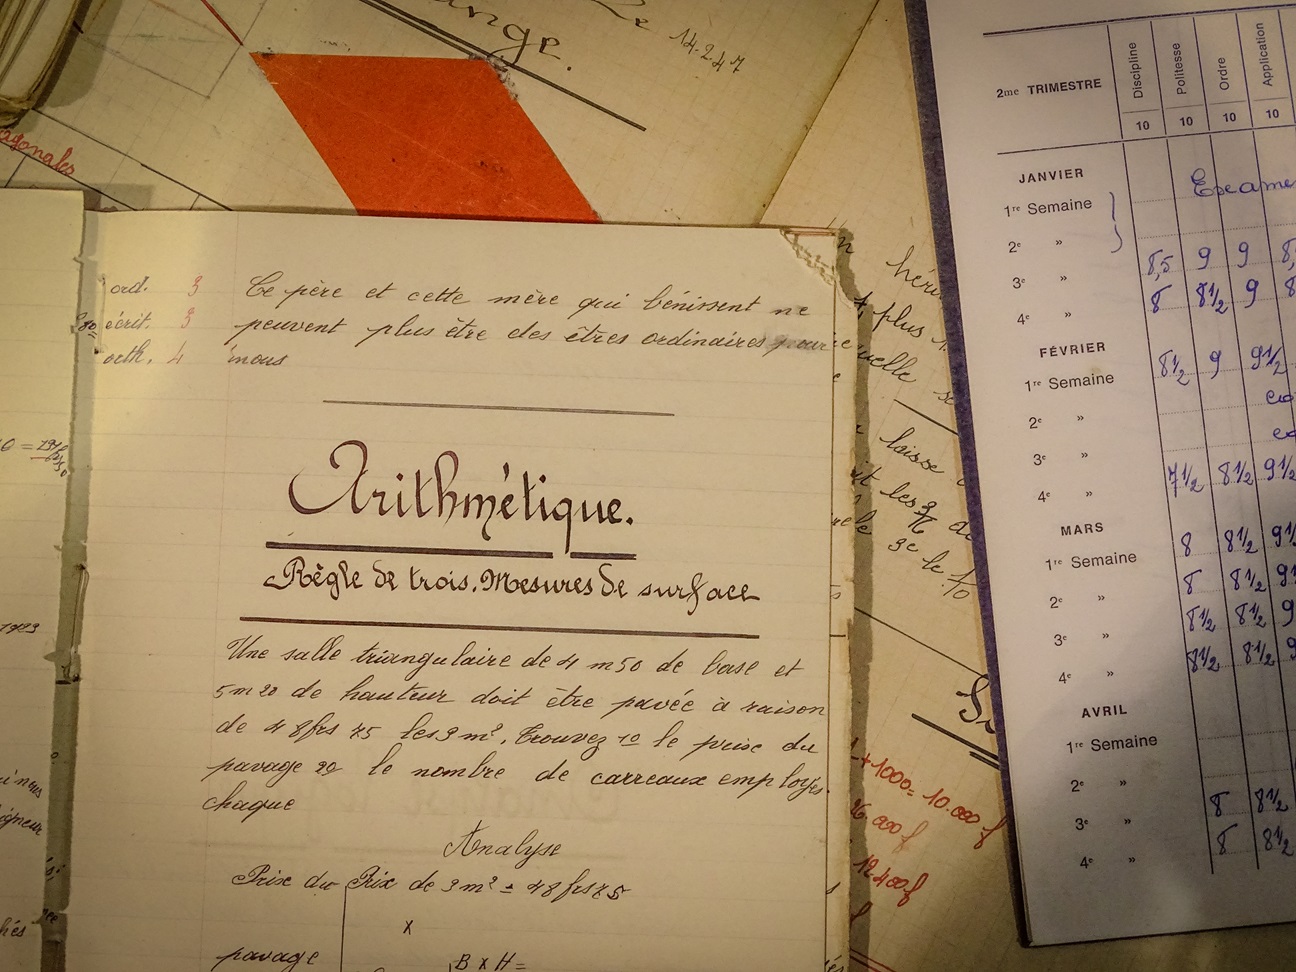 ange.
14.247
agonales
ord. 3
écrit. 3
orth. 4
Ce père et cette mère qui bénissent ne
peuvent plus être des êtres ordinaires pour
nous
Arithmétique.
Règle de trois. Mesures de surface
Une salle triangulaire de 4 m 50 de base et
5 m 20 de hauteur doit être pavée à raison
de 48 frs 75 les 3 m². Trouvez 1o le prix du
pavage 2o le nombre de carreaux employés.
chaque
Analyse
Prix du Prix de 3 m² = 48 frs 75
x
pavage B x H =
1923
plus
laisse
+1000 = 10.000 f
12400f
2me TRIMESTRE Discipline Politesse Ordre Application
10 10 10 10
JANVIER
1re Semaine Examen
2e »
3e » 8,5 9 9 8,
4e » 8 8 1/2 9 8
FÉVRIER
1re Semaine 8 1/2 9 9 1/2
2e »
3e »
4e » 7 1/2 8 1/2 9 1/2
MARS
1re Semaine 8 8 1/2 9 1/2
2e » 8 8 1/2 9
3e » 8 1/2 8 1/2 9
4e » 8 1/2 8 1/2 9
AVRIL
1re Semaine
2e »
3e » 8 8 1/2
4e » 8 8 1/2